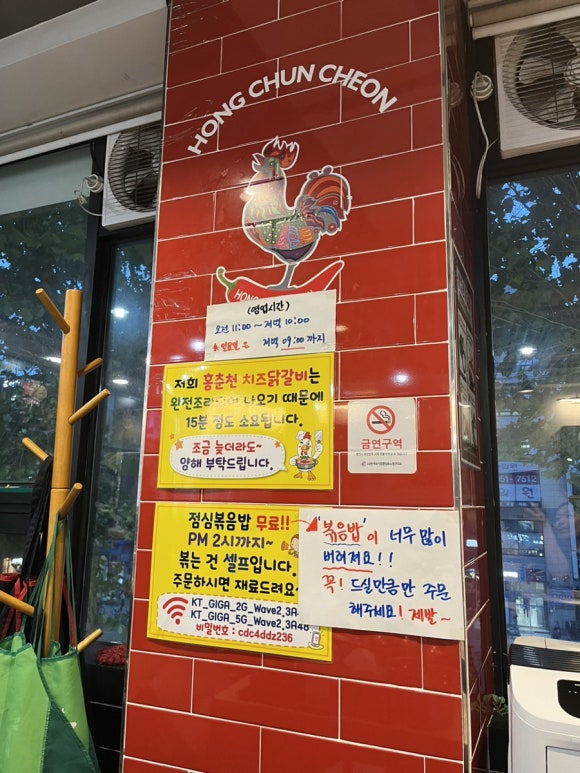 HONG CHUN CHEON
HONG
(영업시간)
오전 11:00 ~ 저녁 10:00
* 일요일은 저녁 09:00 까지
저희 홍춘천 치즈닭갈비는
완전조리되어 나오기 때문에
15분 정도 소요됩니다.
조금 늦더라도~
양해 부탁드립니다.
금연구역
점심볶음밥 무료!!
PM 2시까지~
볶는 건 셀프입니다.
주문하시면 재료드려요
KT_GIGA_2G_Wave2_3A
KT_GIGA_5G_Wave2_3A48
비밀번호 : cdc4ddz236
'볶음밥'이 너무 많이
버려져요!!
꼭! 드실만큼만 주문
해주세요! 제발~
51-7512
의원